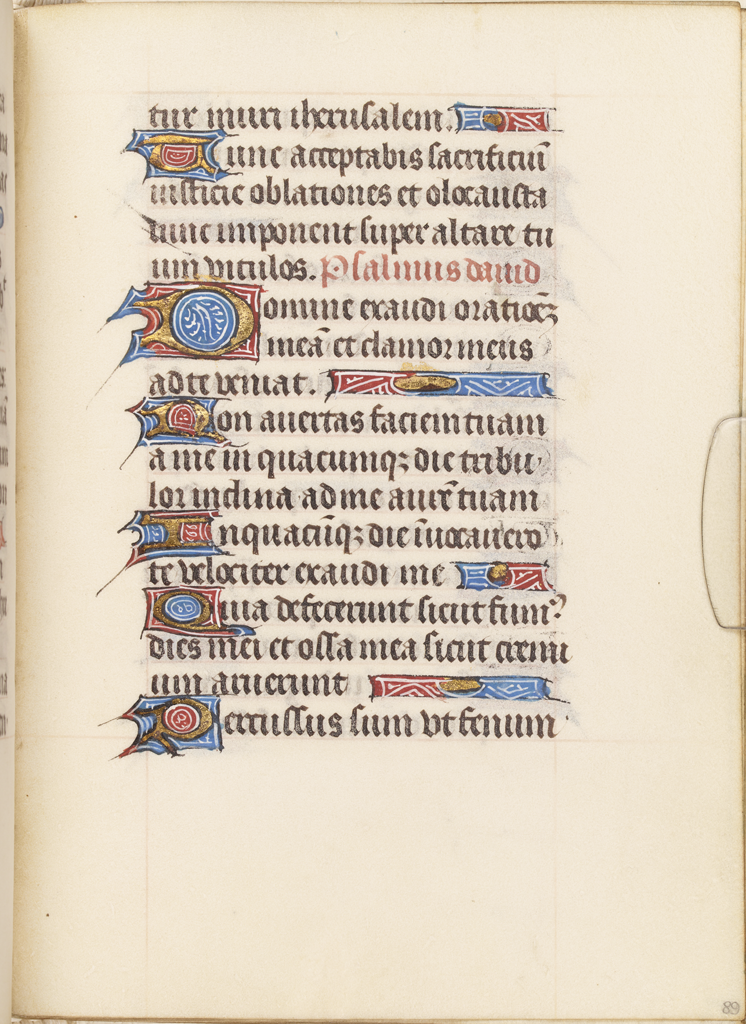 tur muri iherusalem.
Tunc acceptabis sacrificiū
iusticie oblationes et olocausta
tunc imponent super altare tu
um vitulos. Psalmus dauid
Domine exaudi orationeꝫ
meā et clamor meus
ad te veniat.
Non auertas faciem tuam
a me in quacumqꝫ die tribu
lor inclina ad me aurē tuam
In quacūqꝫ die īuocauero
te velociter exaudi me
Quia defecerunt sicut fumꝰ
dies mei et ossa mea sicut cremi
um aruerunt
Percussus sum vt fenum
89